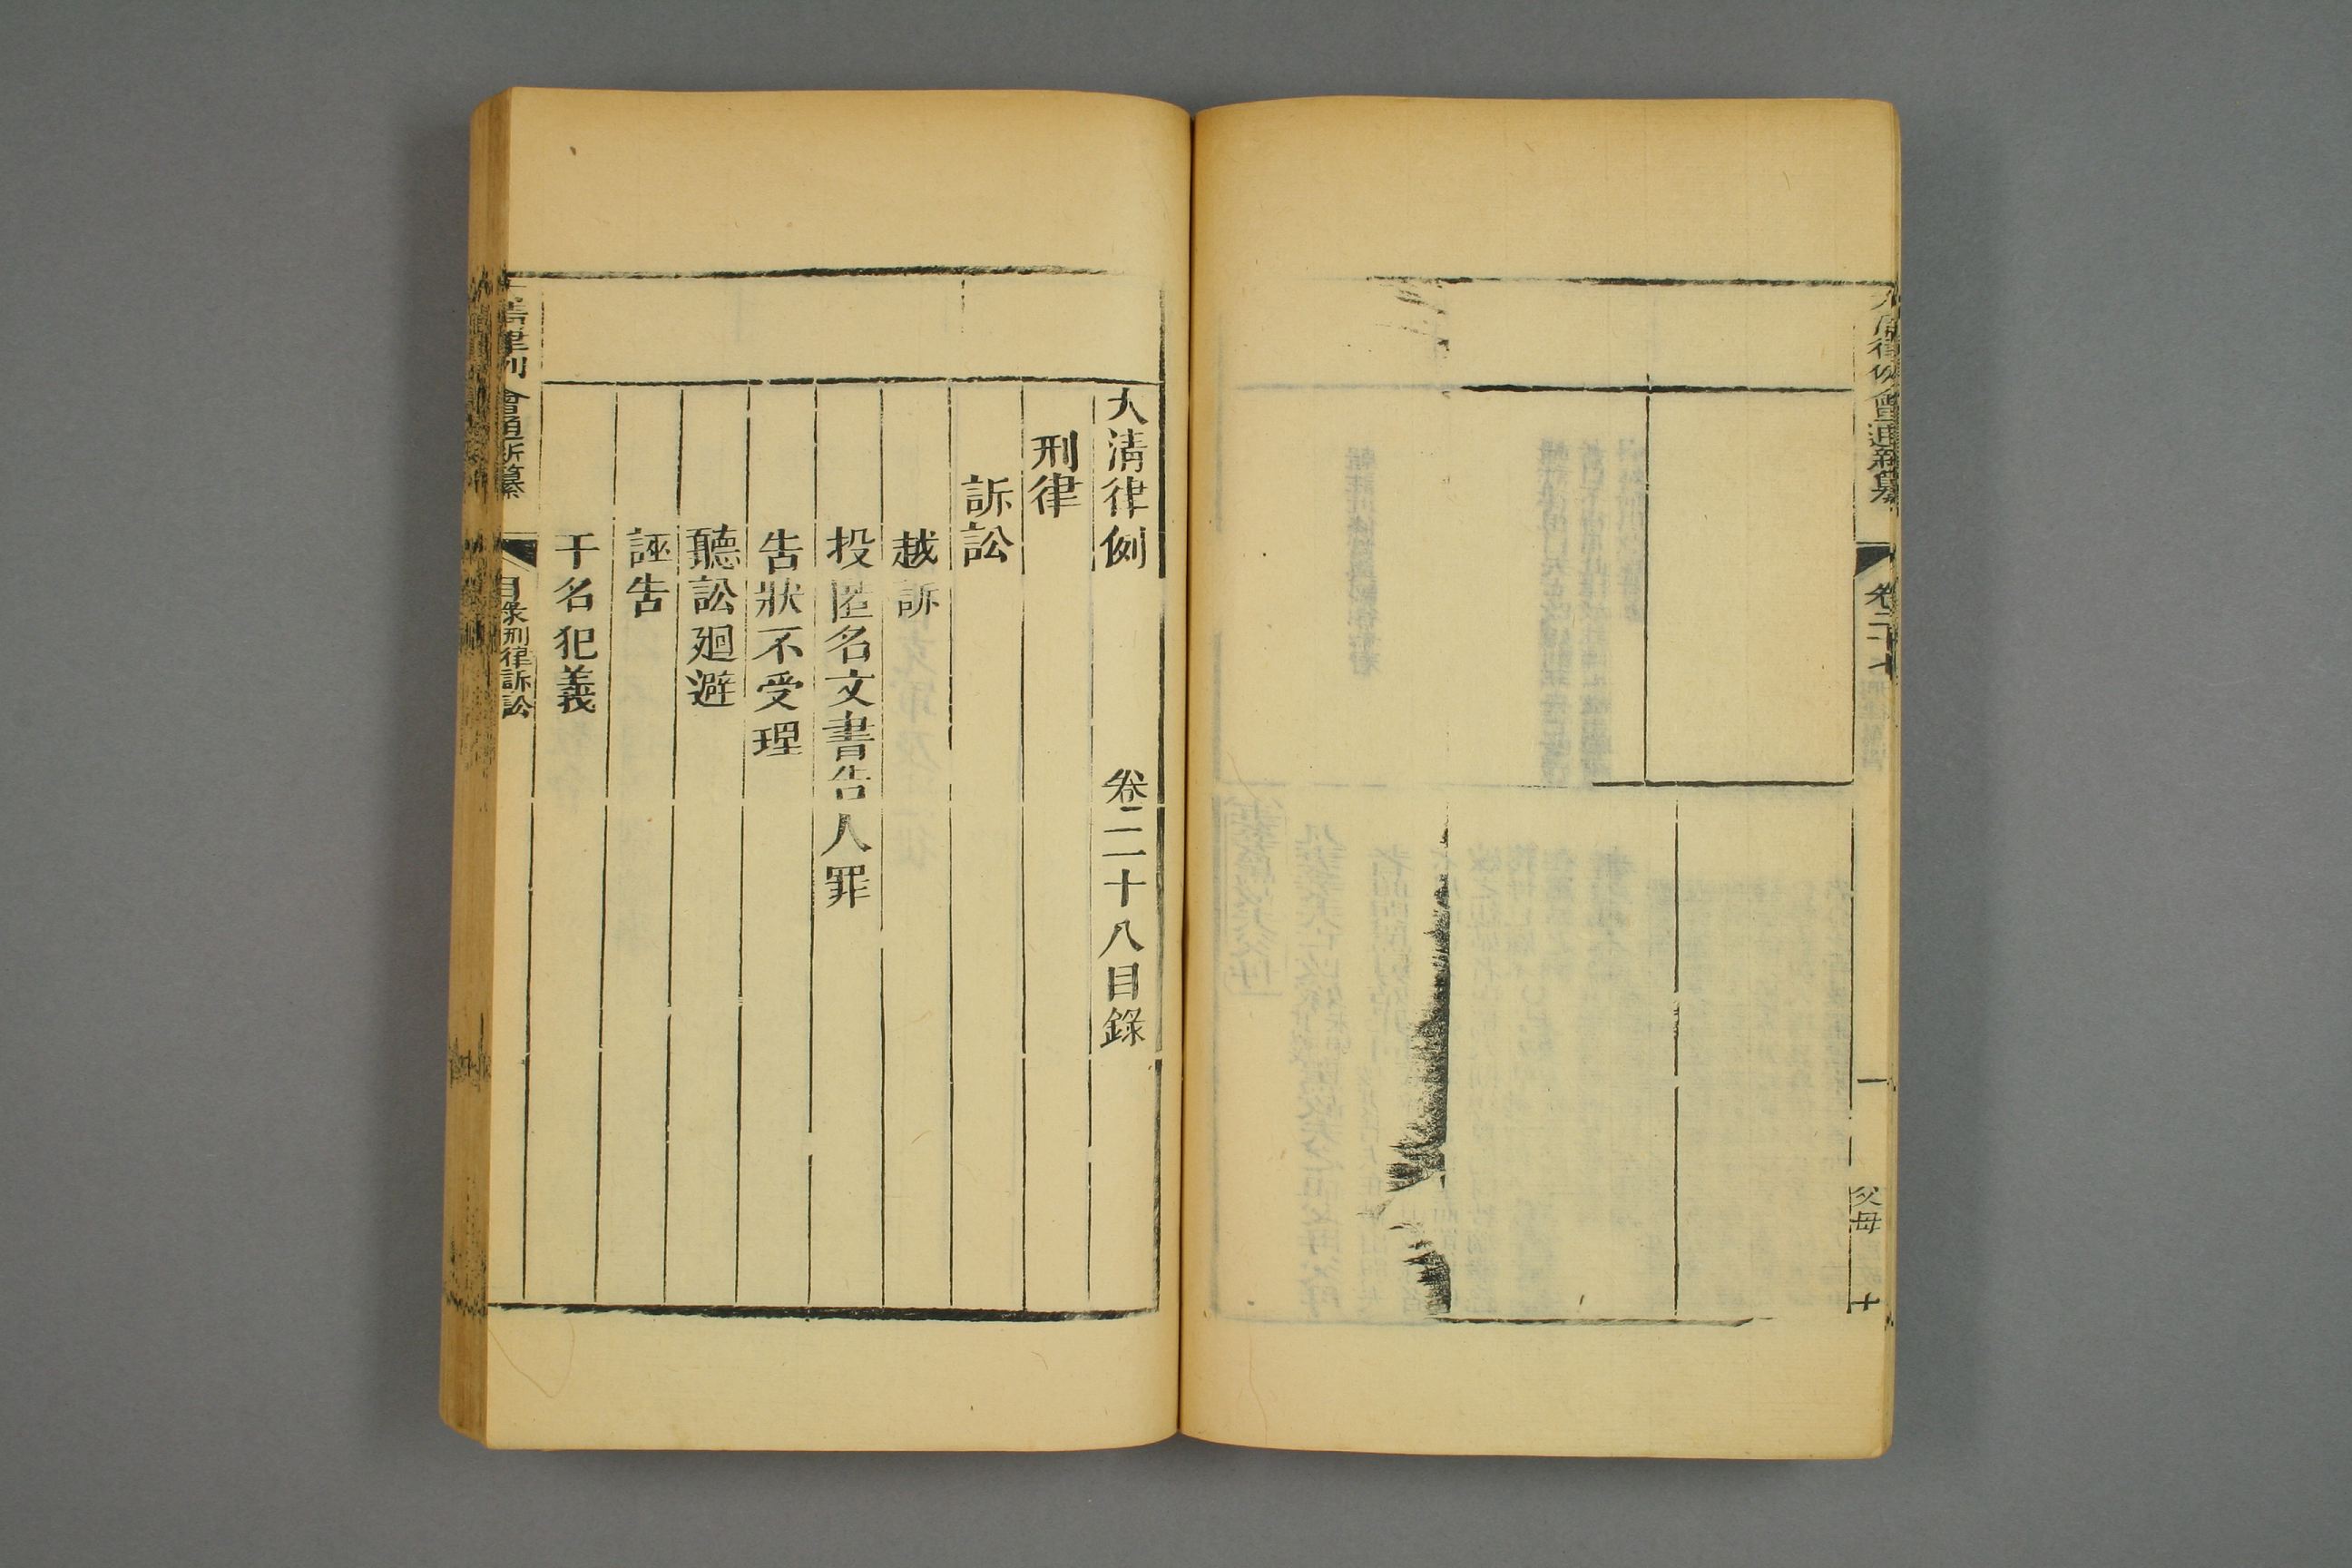 大清律例會通新纂
卷二十七
父母
十
大清律例 卷二十八目錄
刑律
訴訟
越訴
投匿名文書告人罪
告狀不受理
聽訟廻避
誣告
干名犯義
大清律例會通新纂
目錄刑律訴訟